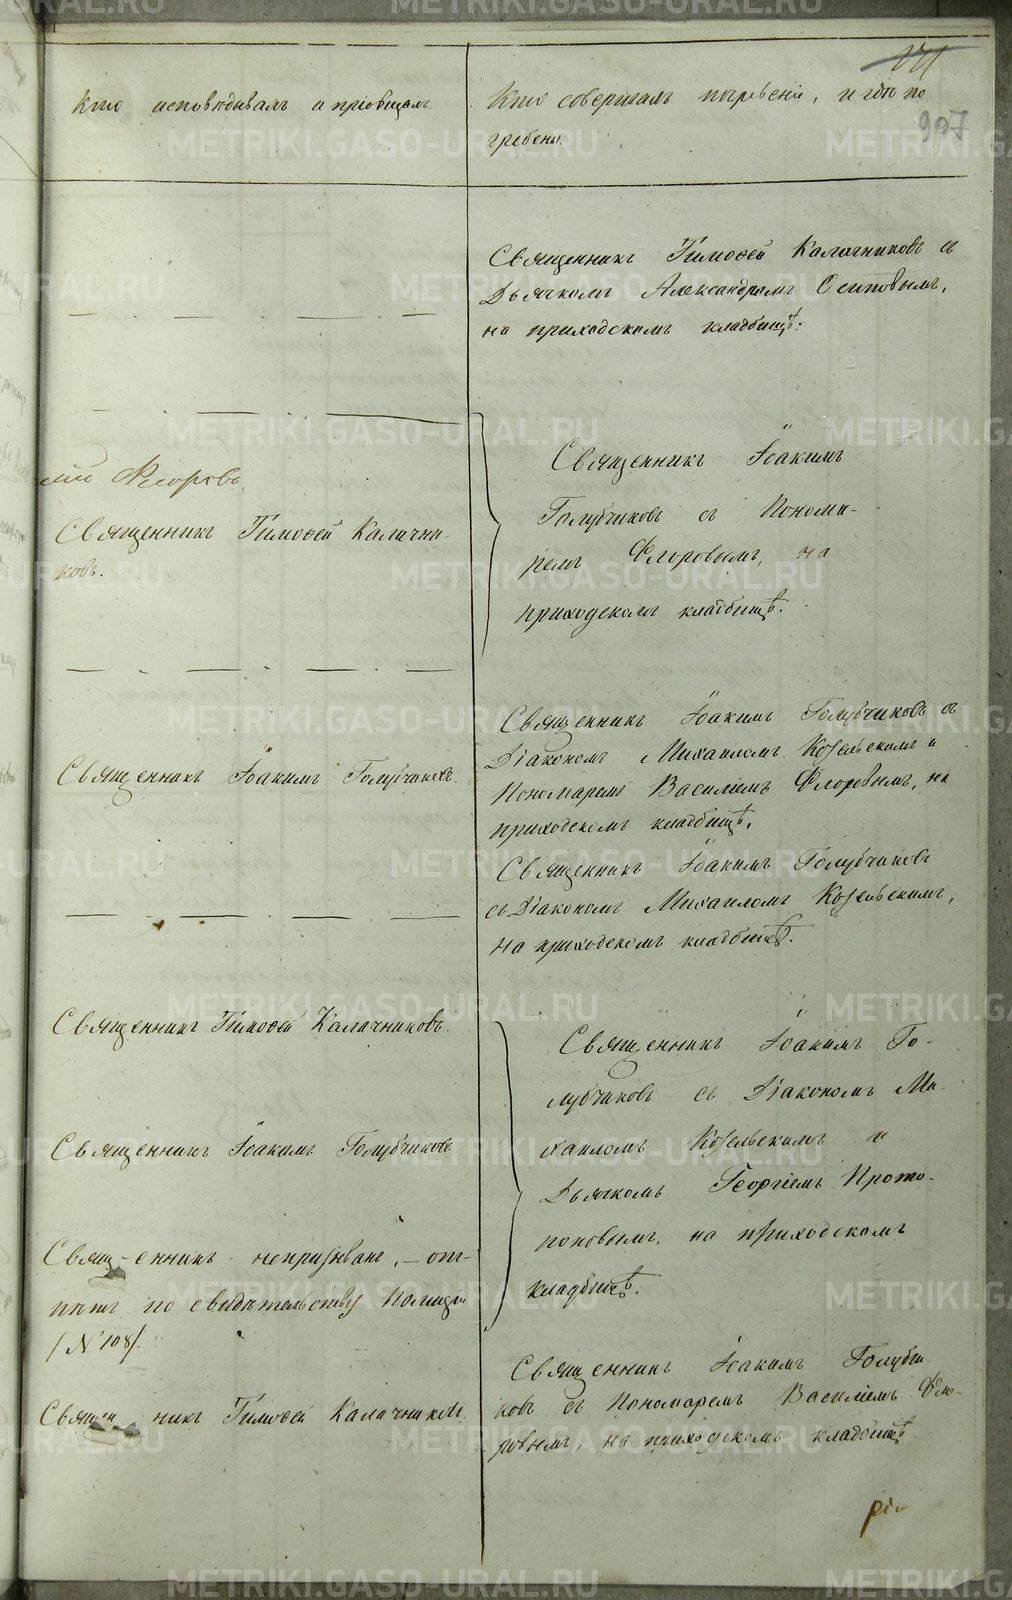 171
907
Кто исповѣдывалъ и пріобщалъ
Кто совершалъ погребеніе, и гдѣ по
гребены.
Священникъ Тимоѳей Калачниковъ съ
Дьячкомъ Александромъ Осиповымъ,
на приходскомъ кладбищѣ:
Священникъ Тимоѳей Калачни-
ковъ.
Священникъ Іоакимъ
Голубчиковъ съ Понома-
ремъ Флоровымъ, на
приходскомъ кладбищѣ.
Священникъ Іоакимъ Голубчиковъ
Священникъ Іоакимъ Голубчиковъ съ
Діакономъ Михаиломъ Козельскимъ и
Пономаремъ Василіемъ Флоровымъ, на
приходскомъ кладбищѣ.
Священникъ Іоакимъ Голубчиковъ
съ Діакономъ Михаиломъ Козельскимъ,
на приходскомъ кладбищѣ.
Священникъ Тимоѳей Калачниковъ.
Священникъ Іоакимъ Голубчиковъ
Священникъ непризванъ, – от-
пѣтъ по свидѣтельству Полиціи
/№ 108/.
Священникъ Іоакимъ Го-
лубчиковъ съ Діакономъ Ми-
хаиломъ Козельскимъ и
Дьячкомъ Георгіемъ Прото-
поповымъ, на приходскомъ
кладбищѣ.
Священникъ Тимоѳей Калачниковъ.
Священникъ Іоакимъ Голубчи
ковъ съ Пономаремъ Василіемъ Фло-
ровымъ, на приходскомъ кладбищѣ
METRIKI.GASO-URAL.RU